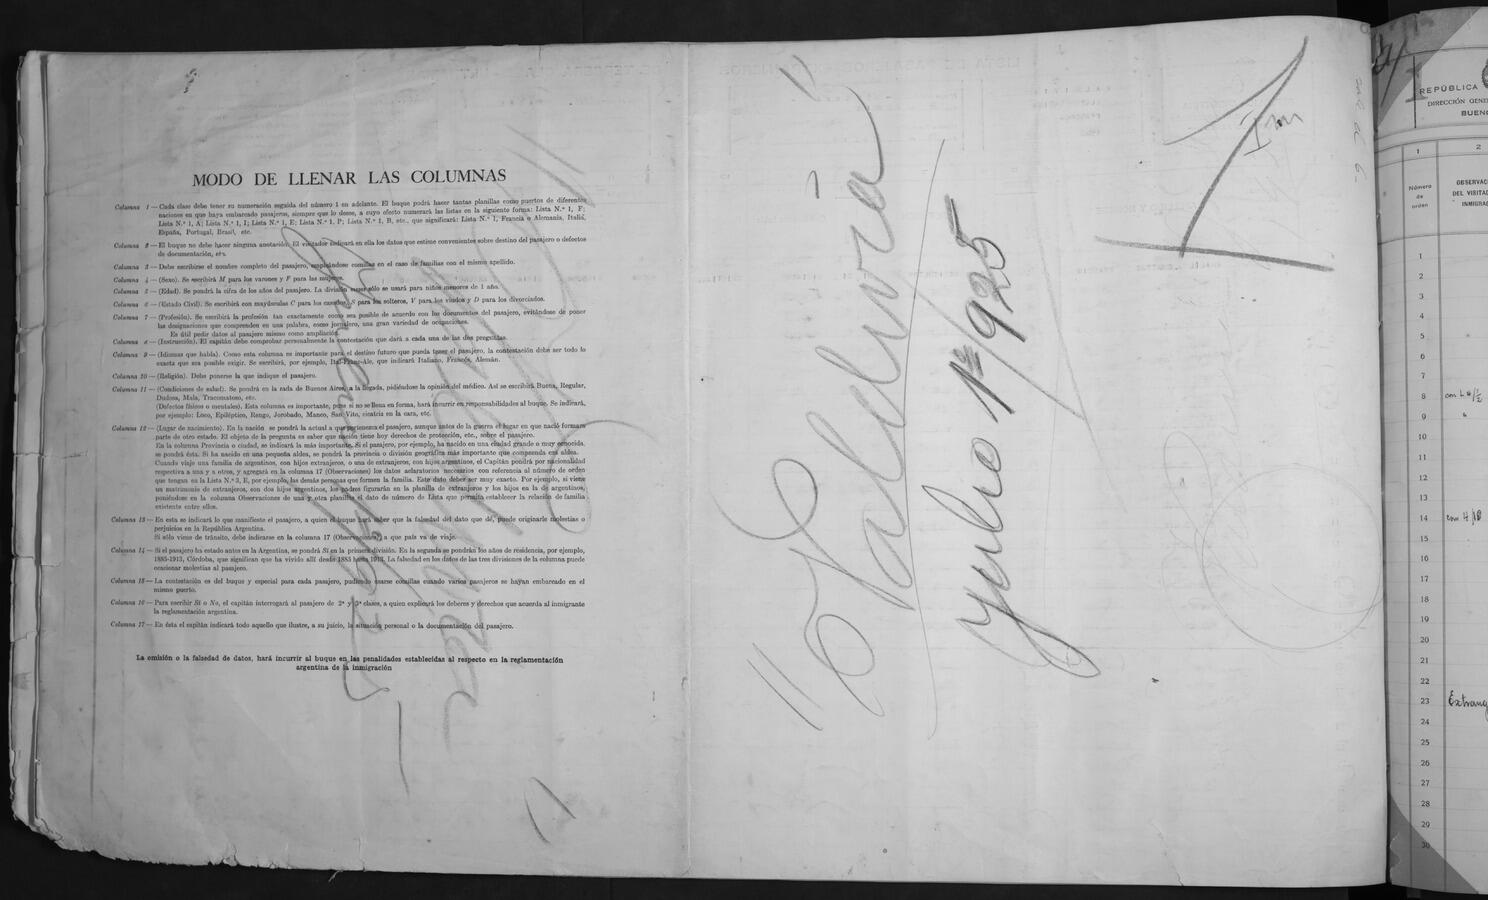 MODO DE LLENAR LAS COLUMNAS
Columna 1 — Cada clase debe tener su numeración seguida del número 1 en adelante. El buque podrá hacer tantas planillas como puertos de diferentes
naciones en que haya embarcado pasajeros, siempre que lo desee, a cuyo efecto numerará las listas en la siguiente forma: Lista N.º 1, F;
Lista N.º 1, A; Lista N.º 1, I; Lista N.º 1, E; Lista N.º 1, P; Lista N.º 1, B, etc., que significará: Lista N.º 1, Francia o Alemania, Italia,
España, Portugal, Brasil, etc.
Columna 2 — El buque no debe hacer ninguna anotación. El visitador indicará en ella los datos que estime convenientes sobre destino del pasajero o defectos
de documentación, etc.
Columna 3 — Debe escribirse el nombre completo del pasajero, empleándose comillas en el caso de familias con el mismo apellido.
Columna 4 — (Sexo). Se escribirá M para los varones y F para las mujeres.
Columna 5 — (Edad). Se pondrá la cifra de los años del pasajero. La división super sólo se usará para niños menores de 1 año.
Columna 6 — (Estado Civil). Se escribirá con mayúsculas C para los casados, S para los solteros, V para los viudos y D para los divorciados.
Columna 7 — (Profesión). Se escribirá la profesión tan exactamente como sea posible de acuerdo con los documentos del pasajero, evitándose de poner
las designaciones que comprenden en una palabra, como jornalero, una gran variedad de ocupaciones.
Es útil pedir datos al pasajero mismo como ampliación.
Columna 8 — (Instrucción). El capitán debe comprobar personalmente la contestación que dará a cada una de las dos preguntas.
Columna 9 — (Idiomas que habla). Como esta columna es importante para el destino futuro que pueda tener el pasajero, la contestación debe ser todo lo
exacta que sea posible exigir. Se escribirá, por ejemplo, Ital-Franc-Ale, que indicará Italiano, Francés, Alemán.
Columna 10 — (Religión). Debe ponerse la que indique el pasajero.
Columna 11 — (Condiciones de salud). Se pondrá en la rada de Buenos Aires, a la llegada, pidiéndose la opinión del médico. Así se escribirá Buena, Regular,
Dudosa, Mala, Tracomatoso, etc.
(Defectos físicos o mentales). Esta columna es importante, pues si no se llena en forma, hará incurrir en responsabilidades al buque. Se indicará,
por ejemplo: Loco, Epiléptico, Rengo, Jorobado, Manco, San Vito, cicatriz en la cara, etc.
Columna 12 — (Lugar de nacimiento). En la nación se pondrá la actual a que perteneza el pasajero, aunque antes de la guerra el lugar en que nació formara
parte de otro estado. El objeto de la pregunta es saber que nación tiene hoy derechos de protección, etc., sobre el pasajero.
En la columna Provincia o ciudad, se indicará la más importante. Si el pasajero, por ejemplo, ha nacido en una ciudad grande o muy conocida,
se pondrá ésta. Si ha nacido en una pequeña aldea, se pondrá la provincia o división geográfica más importante que comprenda esa aldea.
Cuando viaje una familia de argentinos, con hijos extranjeros, o una de extranjeros, con hijos argentinos, el Capitán pondrá por nacionalidad
respectiva a una y a otros, y agregará en la columna 17 (Observaciones) los datos aclaratorios necesarios con referencia al número de orden
que tengan en la Lista N.º 3, E, por ejemplo, las demás personas que formen la familia. Este dato debe ser muy exacto. Por ejemplo, si viene
un matrimonio de extranjeros, con dos hijos argentinos, los padres figurarán en la planilla de extranjeros y los hijos en la de argentinos,
poniéndose en la columna Observaciones de una y otra planilla el dato de número de Lista que permita establecer la relación de familia
existente entre ellos.
Columna 13 — En esta se indicará lo que manifieste el pasajero, a quien el buque hará saber que la falsedad del dato que dé, puede originarle molestias o
perjuicios en la República Argentina.
Si sólo viene de tránsito, debe indicarse en la columna 17 (Observaciones) a que país va de viaje.
Columna 14 — Si el pasajero ha estado antes en la Argentina, se pondrá Sí en la primera división. En la segunda se pondrán los años de residencia, por ejemplo,
1885-1913, Córdoba, que significan que ha vivido allí desde 1885 hasta 1913. La falsedad en los datos de las tres divisiones de la columna puede
ocasionar molestias al pasajero.
Columna 15 — La contestación es del buque y especial para cada pasajero, pudiendo usarse comillas cuando varios pasajeros se hayan embarcado en el
mismo puerto.
Columna 16 — Para escribir Sí o No, el capitán interrogará al pasajero de 2ª y 3ª clases, a quien explicará los deberes y derechos que acuerda al inmigrante
la reglamentación argentina.
Columna 17 — En ésta el capitán indicará todo aquello que ilustre, a su juicio, la situación personal o la documentación del pasajero.
La omisión o la falsedad de datos, hará incurrir al buque en las penalidades establecidas al respecto en la reglamentación
argentina de la inmigración
"Valdivia"
Julio 1º/925
REPÚBLICA
DIRECCIÓN GENE
BUEN
1
2
Número
de
orden
OBSERVAC
DEL VISITAD
INMIGRA
1
2
3
4
5
6
7
8
9
10
11
12
13
14
15
16
17
18
19
20
21
22
23
Extranj
24
25
26
27
28
29
30